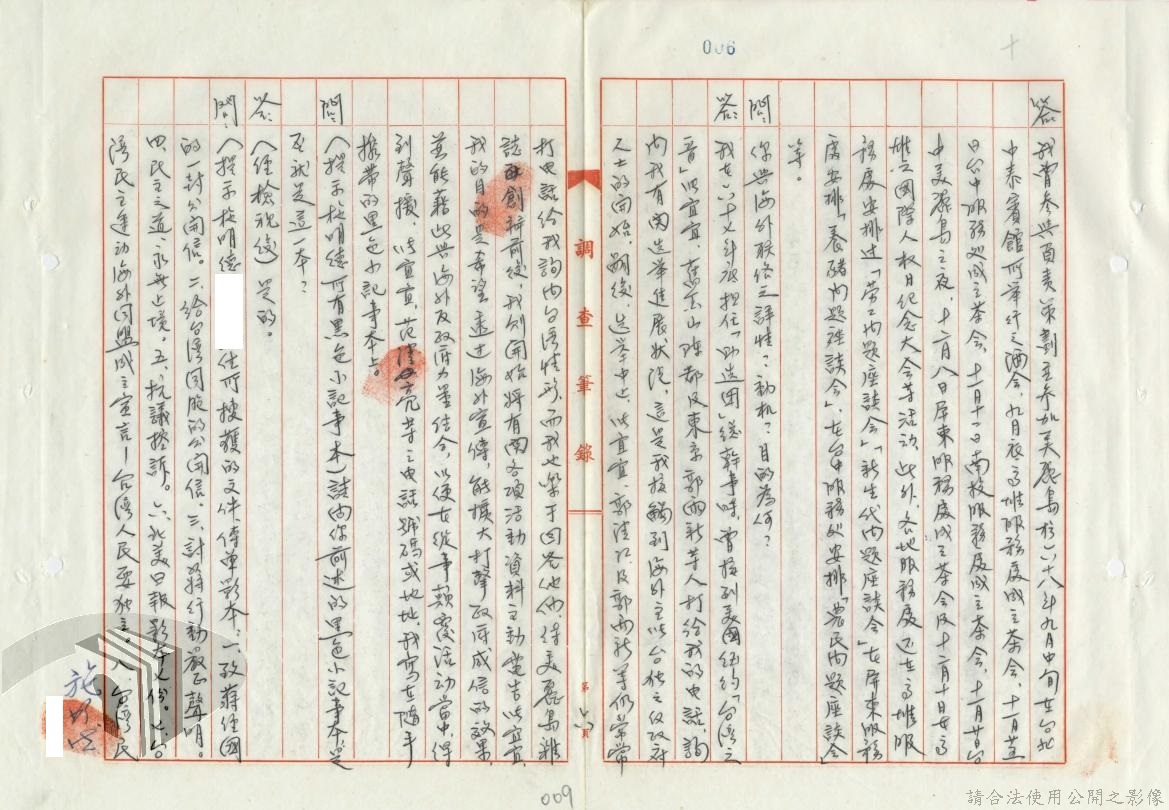 006
十
答：我曾參與負責策劃並參加美麗島於六十八年九月中旬在台北
中泰賓館所舉行之酒會，九月底高雄服務處成立茶會，十一月廿
日台中服務處成立茶會，十一月十一日南投服務處成立茶會，十一月廿日台
中美麗島之夜，十二月八日屏東服務處成立茶會及十二月十日在高
雄之國際人權日紀念大會等活動，此外，各地服務處還在高雄服
務處安排過「勞工問題座談會」「新生代問題座談會」在屏東服務
處安排「養豬問題座談會」，在台中服務處安排「農民問題座談會」
等。
問：你與海外聯絡之詳情？動机？目的為何？
答：我在六十七年底担任「助選團」總幹事時，曾接到美國紐約「台灣之
音」張富美、陳都及東京郭雨新等人打給我的電話，詢
問我有關選舉進展狀況，這是我接觸到海外主張台独之反政府
人士的開始，嗣後，選舉中止，郭雨新等仍常常
調查筆錄
第 頁
打電話給我詢問台灣情形，而我也樂于回答他們，待美麗島雜
誌創辦前後，我則開始將有關各項活動資料主動電告
我的目的是希望透過海外宣傳，能擴大打擊政府威信的效果，
並能藉此與海外反政府力量結合，以便在從事顛覆活動當中，得
到聲援，范清亮等之電話號碼或地址，我寫在隨手
攜帶的黑色小記事本上。
問：（提示施明德所有黑色小記事本）請問你前述的黑色小記事本是
否就是這一本？
答：（經檢視後）是的。
問：（提示施明德 住所搜獲的文件、傳單影本：一、致蔣經國
的一封公開信。二、給台灣同胞的公開信。三、討蔣行動嚴正聲明。
四、民主之道，永無止境。五、抗議控訴。六、北美日報影本七份。七、台
灣民主運動海外同盟成立宣言－台灣人民要独立。八、台灣民
施明德
009
請合法使用公開之影像